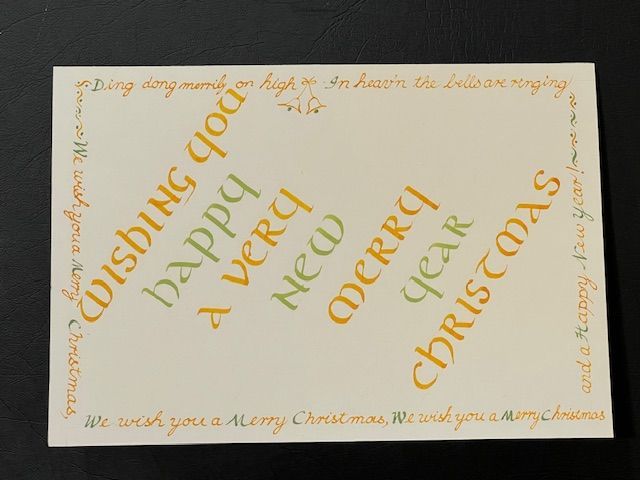 Ding dong merrily on high In heav'n the bells are ringing
We wish you a Merry Christmas,
We wish you a Merry Christmas, We wish you a Merry Christmas
and a Happy New Year!
WISHING YOU
HAPPY
A VERY
NEW
MERRY
YEAR
CHRISTMAS